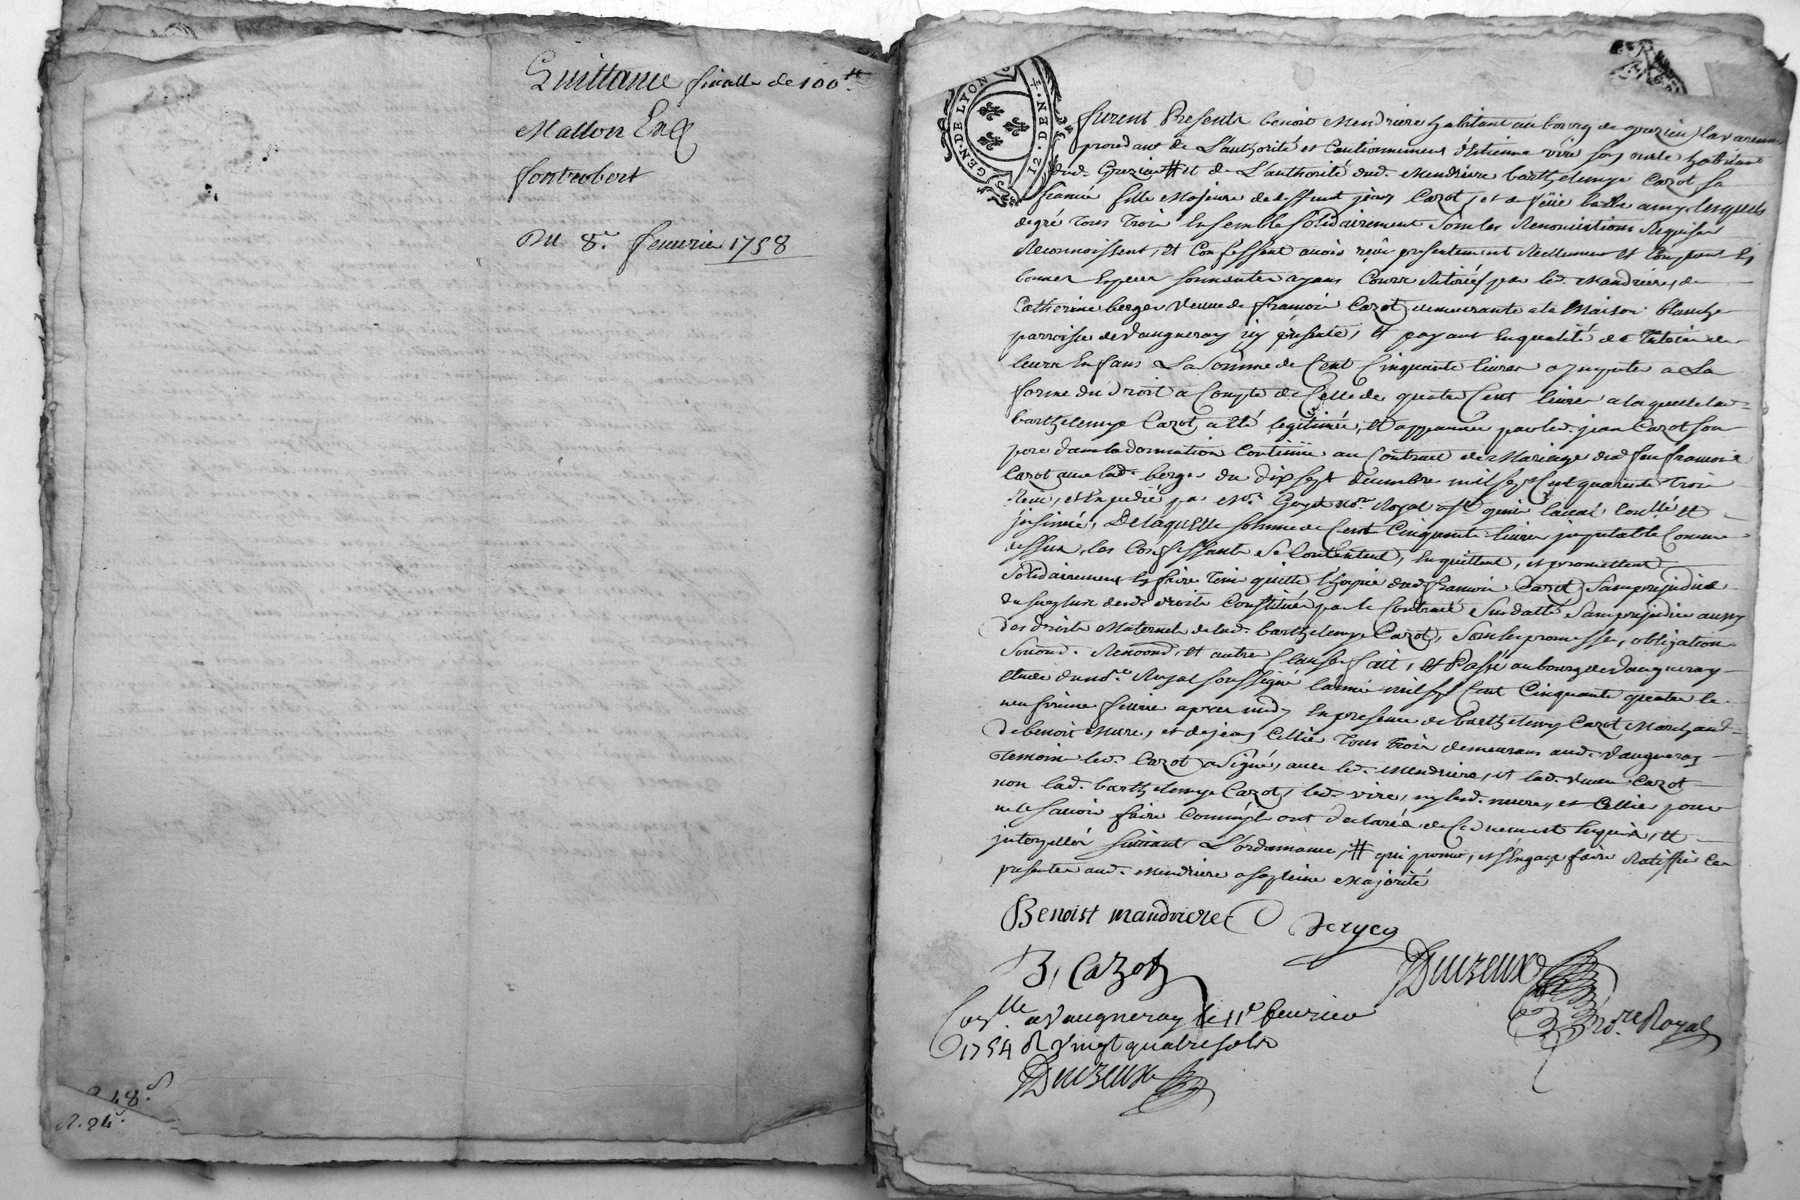 Quittance finalle de 100 ₶
Mallon En q
fontrobert
Du 8e. feuurier 1758
R. 24s.
GEN·DE·LYON
12·DEN·
furent Presents benoit Mendriere habitant au bourg de grezieu la varenne
procedant de L'authorité et Cautionnement d'Etienne vire son oncle habitant
dud. Grezieu # et de L'authorité dud. Mendriere barthelemye Cazot sa
fiancée fille Majeure de deffunt jean Cazot, et de lesquels
de gré tous trois Ensemble solidairement sous les Renonciations Requises
Reconnoissent, et Confessent avoir reçu presentement Reellement et Comptant En
bonnes Especes sonnantes ayans Cours Retirées par led. Mandriere, de
Catherine berger veuve de francois Cazot demeurante a la Maison blanche
parroisse de Vaugneray icy présente, et payant En qualité de Tutrice de
leurs Enfans La somme de Cent Cinquante livres a jmputer a La
forme du Droit a Compte de Celle de quatre Cent livres a laquelle lad.
barthelemye Cazot a été legitimée, et appannée par led. jean Cazot son
pere dans la donnation Contenüe au Contract de Mariage dud. feu francois
Cazot avec lad. berger du dix sept decembre mil sept Cent quarante trois
Reçu, et Expedié par Me. Goyet nore. Royal
jnsinué, De laquelle somme de Cent Cinquante livres jmputable Comme
dessus, les Confessants se Contentent, En quittent, et promettent
solidairement En faire tenir quitte l'hoyrie dud. francois Cazot, sans prejudice
du surplus desd. droits Constitués par le Contract susdatté, sans prejudice aussy
des droits Maternels de lad. barthelemye Cazot, sous les promesses, obligations
Renoond. et autres Clauses fait, et Passé au bourg de Vaugneray
étude du nore. Royal soussigné l'année mil sept Cent Cinquante quatre le
neufvieme fevrier apres midy En presence de barthelemy Cazot Marchand
de benoit Mure, et de jean Cellie tous trois demeurans aud. Vaugneray
temoins led. Cazot a signé, avec led. Mendriere, et lad. veuve Cazot
non lad. barthelemye Cazot, led. vire, ny lesd. mure, et Cellie, pour
ne le savoir faire Comme ils ont declaré de Ce duement Enquis, et
jnterpellés suivant L'ordonnance, # qui promet, et s'Engage faire Ratiffier les
presentes aud. Mendriere a sa pleine Majorité
Benoist mandriere
B, Cazot
Duizeux
nore Royal
Conllé a Vaugneray le 11e feurier
1754 R vingt quatre sols
Duizeux